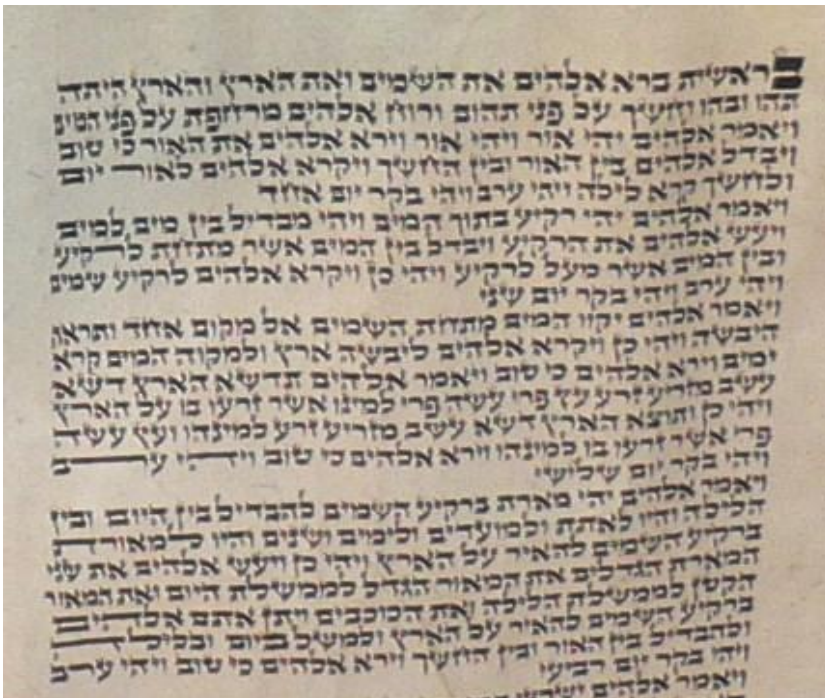 בראשית ברא אלהים את השמים ואת הארץ והארץ היתה
תהו ובהו וחשך על פני תהום ורוח אלהים מרחפת על פני המים
ויאמר אלהים יהי אור ויהי אור וירא אלהים את האור כי טוב
ויבדל אלהים בין האור ובין החשך ויקרא אלהים לאור יום
ולחשך קרא לילה ויהי ערב ויהי בקר יום אחד
ויאמר אלהים יהי רקיע בתוך המים ויהי מבדיל בין מים למים
ויעש אלהים את הרקיע ויבדל בין המים אשר מתחת לרקיע
ובין המים אשר מעל לרקיע ויהי כן ויקרא אלהים לרקיע שמים
ויהי ערב ויהי בקר יום שני
ויאמר אלהים יקוו המים מתחת השמים אל מקום אחד ותראה
היבשה ויהי כן ויקרא אלהים ליבשה ארץ ולמקוה המים קרא
ימים וירא אלהים כי טוב ויאמר אלהים תדשא הארץ דשא
עשב מזריע זרע עץ פרי עשה פרי למינו אשר זרעו בו על הארץ
ויהי כן ותוצא הארץ דשא עשב מזריע זרע למינהו ועץ עשה
פרי אשר זרעו בו למינהו וירא אלהים כי טוב ויהי ערב
ויהי בקר יום שלישי
ויאמר אלהים יהי מארת ברקיע השמים להבדיל בין היום ובין
הלילה והיו לאתת ולמועדים ולימים ושנים והיו למאורת
ברקיע השמים להאיר על הארץ ויהי כן ויעש אלהים את שני
המארת הגדלים את המאור הגדל לממשלת היום ואת המאור
הקטן לממשלת הלילה ואת הכוכבים ויתן אתם אלהים
ברקיע השמים להאיר על הארץ ולמשל ביום ובלילה
ולהבדיל בין האור ובין החשך וירא אלהים כי טוב ויהי ערב
ויהי בקר יום רביעי
ויאמר אלהים ישרצו